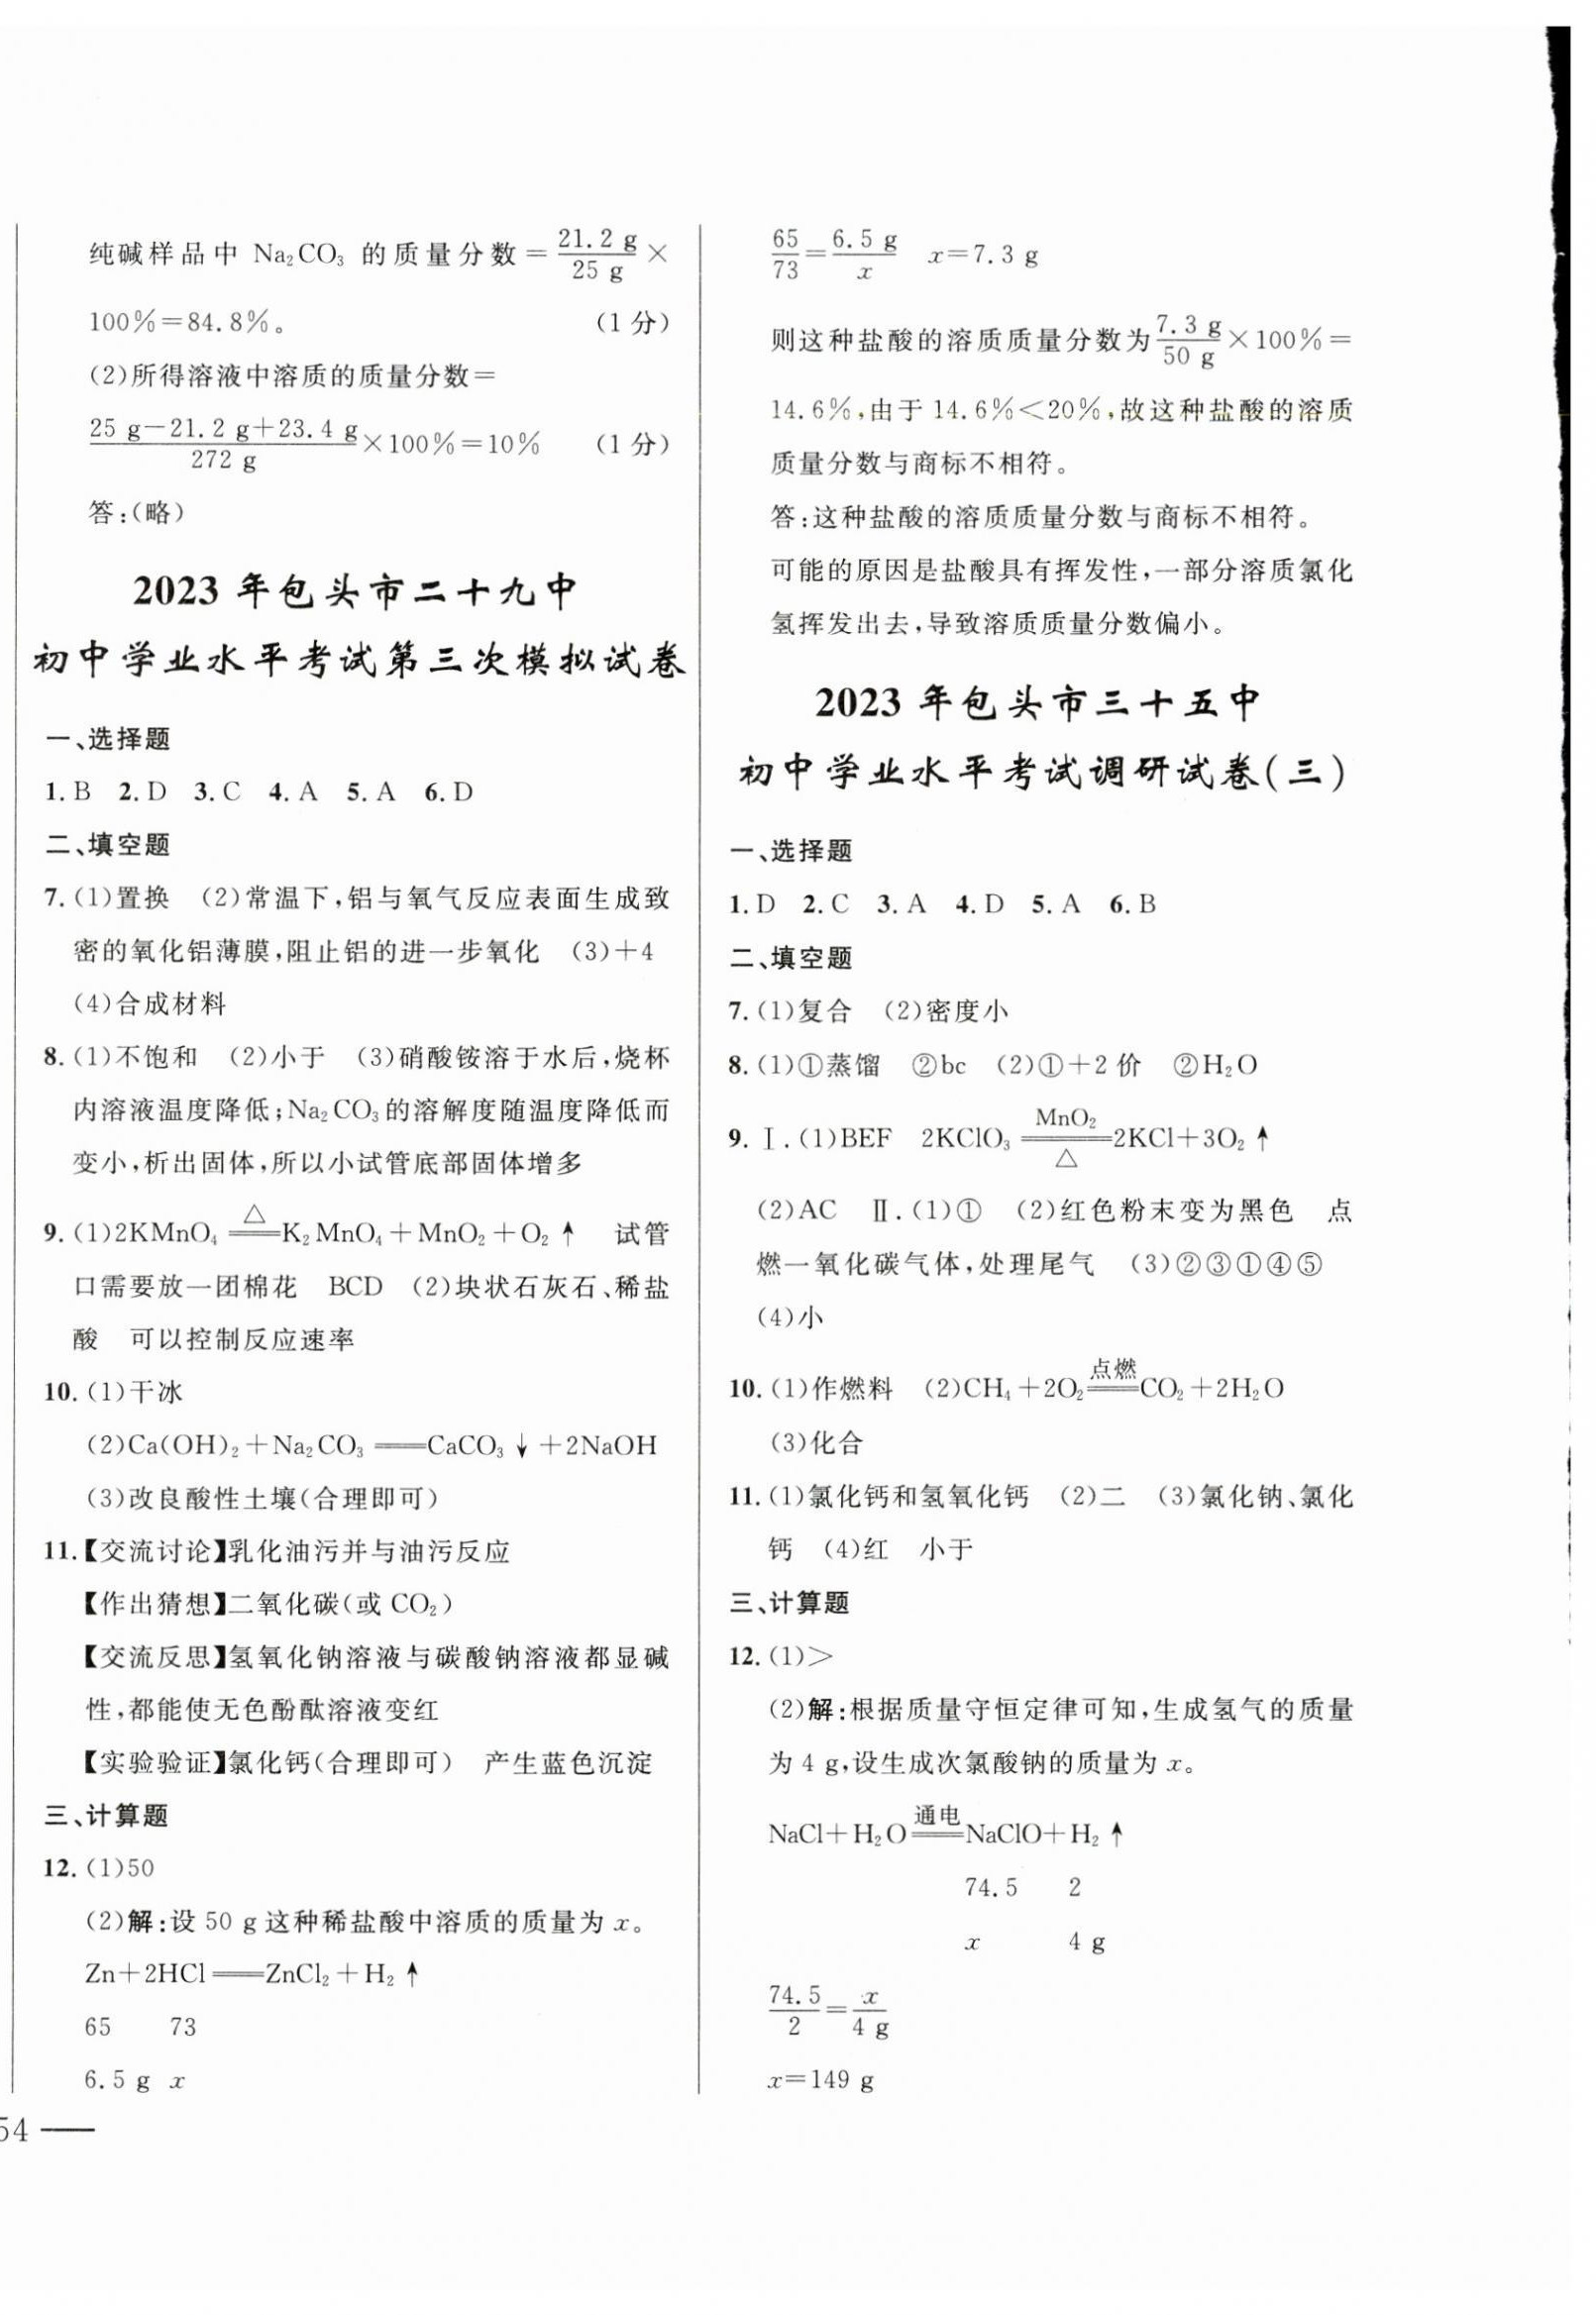 纯碱样品中 Na₂CO₃ 的质量分数=21.2 g/25 g×
100%=84.8%。 (1分)
(2)所得溶液中溶质的质量分数=
25 g-21.2 g+23.4 g/272 g×100%=10% (1分)
答:(略)
2023年包头市二十九中
初中学业水平考试第三次模拟试卷
一、选择题
1.B 2.D 3.C 4.A 5.A 6.D
二、填空题
7.(1)置换 (2)常温下,铝与氧气反应表面生成致
密的氧化铝薄膜,阻止铝的进一步氧化 (3)+4
(4)合成材料
8.(1)不饱和 (2)小于 (3)硝酸铵溶于水后,烧杯
内溶液温度降低;Na₂CO₃的溶解度随温度降低而
变小,析出固体,所以小试管底部固体增多
9.(1)2KMnO₄ =△= K₂MnO₄+MnO₂+O₂↑ 试管
口需要放一团棉花 BCD (2)块状石灰石、稀盐
酸 可以控制反应速率
10.(1)干冰
(2)Ca(OH)₂+Na₂CO₃══CaCO₃↓+2NaOH
(3)改良酸性土壤(合理即可)
11.【交流讨论】乳化油污并与油污反应
【作出猜想】二氧化碳(或 CO₂)
【交流反思】氢氧化钠溶液与碳酸钠溶液都显碱
性,都能使无色酚酞溶液变红
【实验验证】氯化钙(合理即可) 产生蓝色沉淀
三、计算题
12.(1)50
(2)解:设 50 g 这种稀盐酸中溶质的质量为 x。
Zn+2HCl══ZnCl₂+H₂↑
65 73
6.5 g x
54
65/73=6.5 g/x x=7.3 g
则这种盐酸的溶质质量分数为7.3 g/50 g×100%=
14.6%,由于 14.6%<20%,故这种盐酸的溶质
质量分数与商标不相符。
答:这种盐酸的溶质质量分数与商标不相符。
可能的原因是盐酸具有挥发性,一部分溶质氯化
氢挥发出去,导致溶质质量分数偏小。
2023年包头市三十五中
初中学业水平考试调研试卷(三)
一、选择题
1.D 2.C 3.A 4.D 5.A 6.B
二、填空题
7.(1)复合 (2)密度小
8.(1)①蒸馏 ②bc (2)①+2价 ②H₂O
9.Ⅰ.(1)BEF 2KClO₃ =MnO₂/△= 2KCl+3O₂↑
(2)AC Ⅱ.(1)① (2)红色粉末变为黑色 点
燃一氧化碳气体,处理尾气 (3)②③①④⑤
(4)小
10.(1)作燃料 (2)CH₄+2O₂ =点燃= CO₂+2H₂O
(3)化合
11.(1)氯化钙和氢氧化钙 (2)二 (3)氯化钠、氯化
钙 (4)红 小于
三、计算题
12.(1)>
(2)解:根据质量守恒定律可知,生成氢气的质量
为 4 g,设生成次氯酸钠的质量为 x。
NaCl+H₂O =通电= NaClO+H₂↑
74.5 2
x 4 g
74.5/2=x/4 g
x=149 g